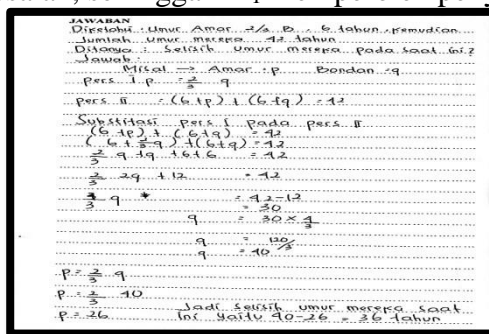 JAWABAN
Diketahui : Umur Amar 2/3 B. 6 tahun kemudian
Jumlah umur mereka 42 tahun
Ditanya : Selisih umur mereka pada saat ini?
Jawab :
Misal → Amar : p Bondan : q
pers I p = 2/3 q
pers II = (6+p) + (6+q) = 42
Substitasi pers I pada pers II
(6+p) + (6+q) = 42
(6+2/3 q) + (6+q) = 42
2/3 q + q + 6+6 = 42
2/3 2q + 12 = 42
q = 42-12
= 30
q = 30 × 4/3
q = 120/3
q = 40
p = 2/3 q
p = 2/3 40
p = 26
Jadi selisih umur mereka saat
ini yaitu 40-26 = 36 tahun